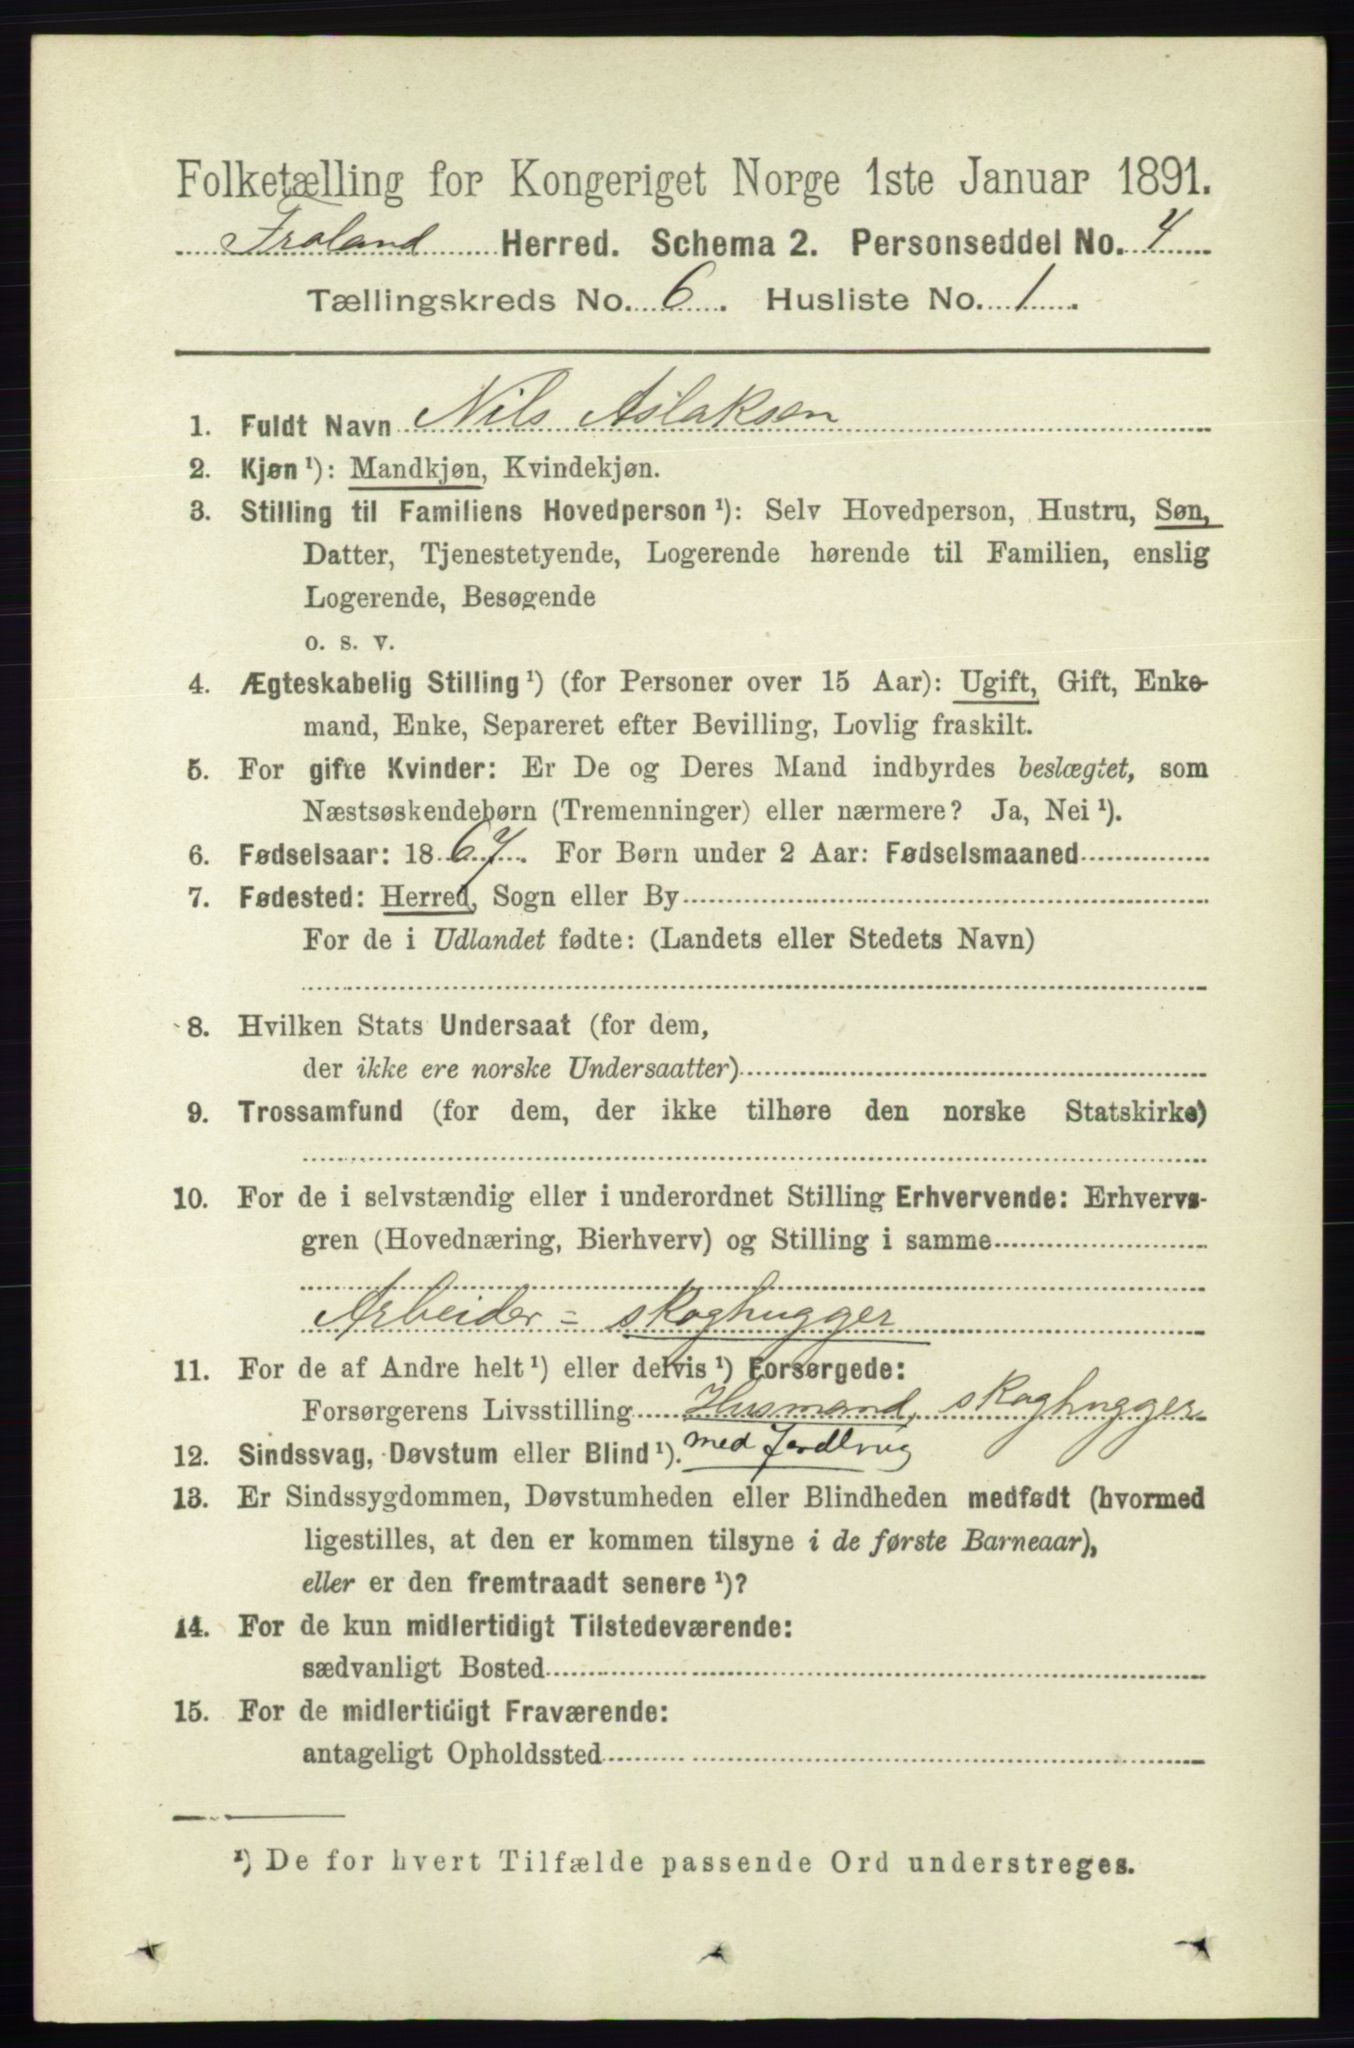 Folketælling for Kongeriget Norge 1ste Januar 1891.
Froland Herred. Schema 2. Personseddel No. 4
Tællingskreds No. 6. Husliste No. 1.
1. Fuldt Navn Nils Aslaksen
2. Kjøn ¹): Mandkjøn, Kvindekjøn.
3. Stilling til Familiens Hovedperson ¹): Selv Hovedperson, Hustru, Søn,
Datter, Tjenestetyende, Logerende hørende til Familien, enslig
Logerende, Besøgende
o. s. v.
4. Ægteskabelig Stilling ¹) (for Personer over 15 Aar): Ugift, Gift, Enke-
mand, Enke, Separeret efter Bevilling, Lovlig fraskilt.
5. For gifte Kvinder: Er De og Deres Mand indbyrdes beslægtet, som
Næstsøskendebørn (Tremenninger) eller nærmere? Ja, Nei ¹).
6. Fødselsaar: 1867. For Børn under 2 Aar: Fødselsmaaned
7. Fødested: Herred, Sogn eller By
For de i Udlandet fødte: (Landets eller Stedets Navn)
8. Hvilken Stats Undersaat (for dem,
der ikke ere norske Undersaatter)
9. Trossamfund (for dem, der ikke tilhøre den norske Statskirke)
10. For de i selvstændig eller i underordnet Stilling Erhvervende: Erhvervs-
gren (Hovednæring, Bierhverv) og Stilling i samme
Arbeider = skoghugger
11. For de af Andre helt ¹) eller delvis ¹) Forsørgede:
Forsørgerens Livsstilling Husmand, skoghugger
12. Sindssvag, Døvstum eller Blind ¹). med Jordbrug
13. Er Sindssygdommen, Døvstumheden eller Blindheden medfødt (hvormed
ligestilles, at den er kommen tilsyne i de første Barneaar),
eller er den fremtraadt senere ¹)?
14. For de kun midlertidigt Tilstedeværende:
sædvanligt Bosted
15. For de midlertidigt Fraværende:
antageligt Opholdssted
¹) De for hvert Tilfælde passende Ord understreges.